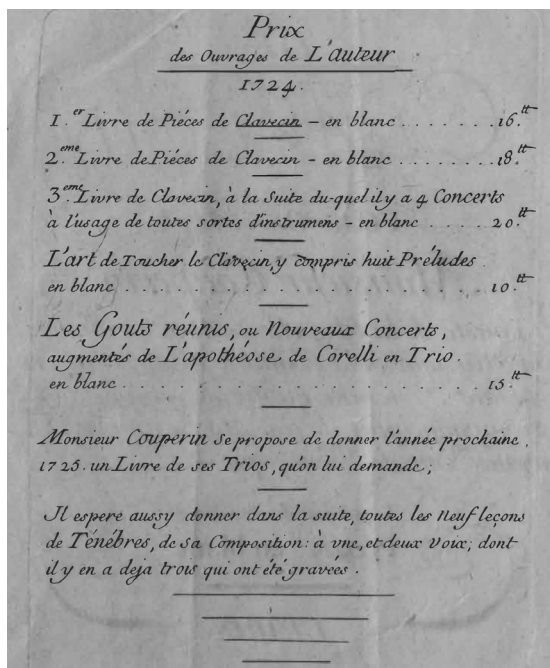 Prix
des Ouvrages de L'auteur
1724.
1.er Livre de Piéces de Clavecin - en blanc . . . . . . . 16.tt
2.eme Livre de Piéces de Clavecin - en blanc . . . . . . 18.tt
3.eme Livre de Clavecin, à la Suite du-quel il y a 4 Concerts
à l'usage de toutes sortes d'instrumens - en blanc . . . . . 20.tt
L'art de Toucher le Clavecin, y compris huit Préludes.
en blanc . . . . . . . . . . . . . . . . . . . 10.tt
Les Gouts réunis, ou Nouveaux Concerts,
augmentés de L'apothéose de Corelli en Trio.
en blanc . . . . . . . . . . . . . . . . . . . 15.tt
Monsieur Couperin se propose de donner l'année prochaine,
1725. un Livre de ses Trios, qu'on lui demande;
Il espere aussy donner dans la suite, toutes les Neuf leçons
de Ténébres, de sa Composition: à vne, et deux Voix; dont
il y en a deja trois qui ont été gravées.